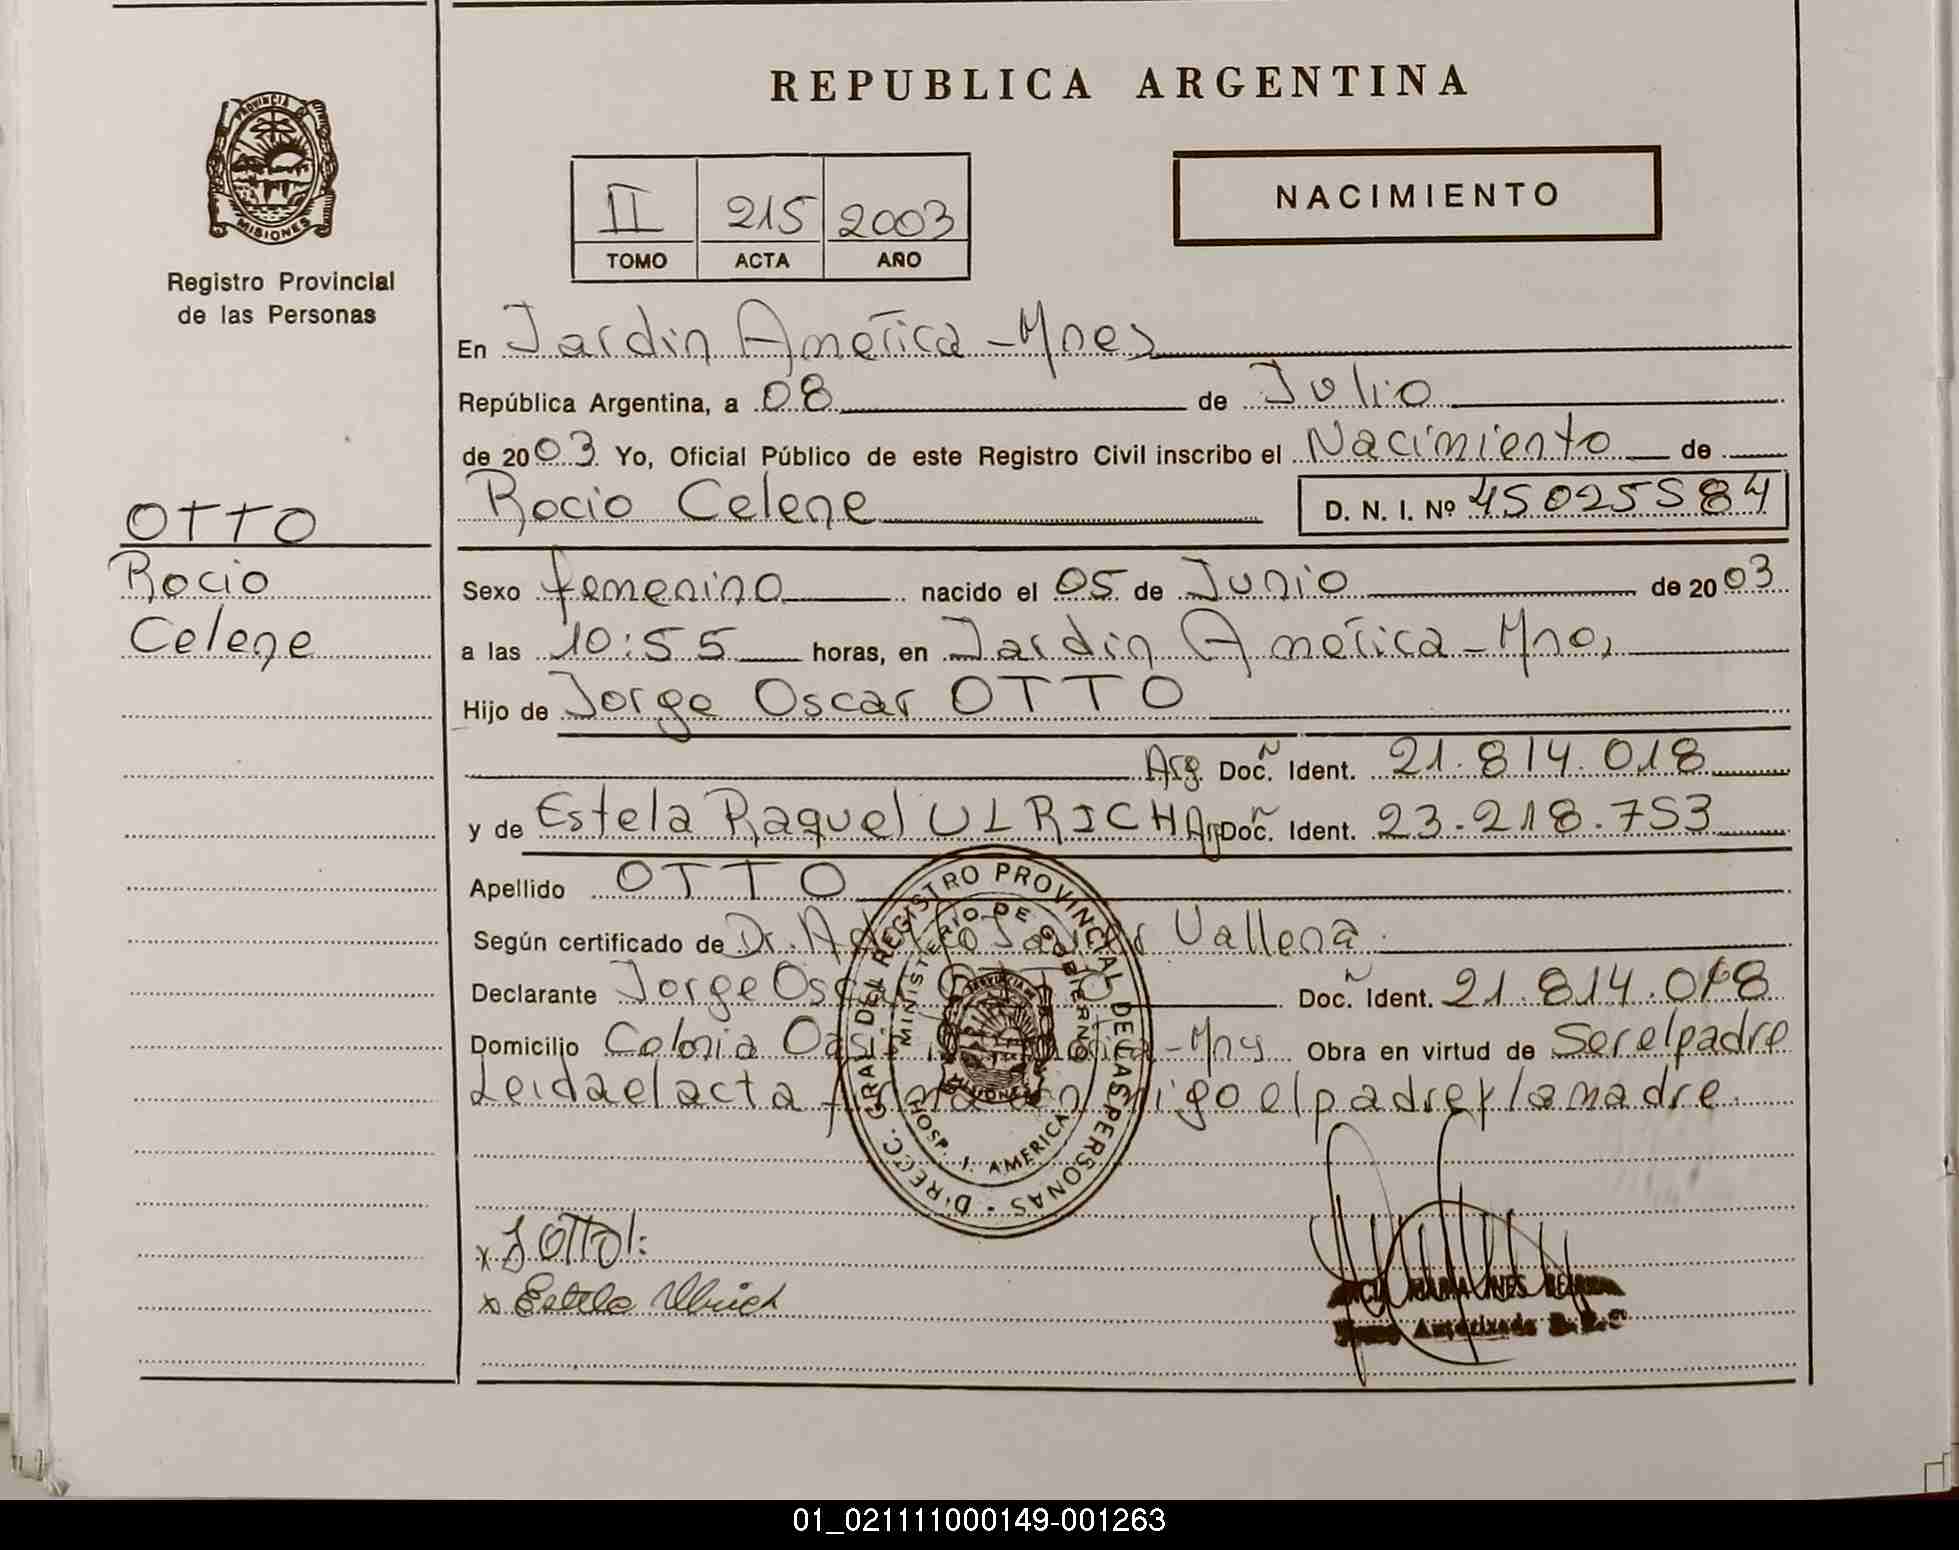 REPUBLICA ARGENTINA
PROVINCIA
MISIONES
Registro Provincial
de las Personas
II 215 2003
TOMO ACTA AÑO
NACIMIENTO
En Jardin América - Mnes
República Argentina, a 08 de Julio
de 2003 Yo, Oficial Público de este Registro Civil inscribo el Nacimiento de
Rocio Celene D. N. I. Nº 45025584
OTTO
Rocio
Celene
Sexo femenino nacido el 05 de Junio de 2003
a las 10:55 horas, en Jardin América - Mnes
Hijo de Jorge Oscar OTTO
Arg. Doc. Ident. 21.814.018
y de Estela Raquel ULRICH Arg Doc. Ident. 23.218.753
Apellido OTTO
Según certificado de Dr. Vallena
Declarante Jorge Oscar OTTO Doc. Ident. 21.814.018
Domicilio Colonia Oasis - Mnes Obra en virtud de Ser el padre
Leida el acta el padre y la madre.
DIRECC. GRAL DEL REGISTRO PROVINCIAL DE LAS PERSONAS
MINISTERIO DE GOBIERNO
HOSP. J. AMERICA
x J OTTO
x Estela Ulrich
MARIA INES
Autorizada
01_021111000149-001263